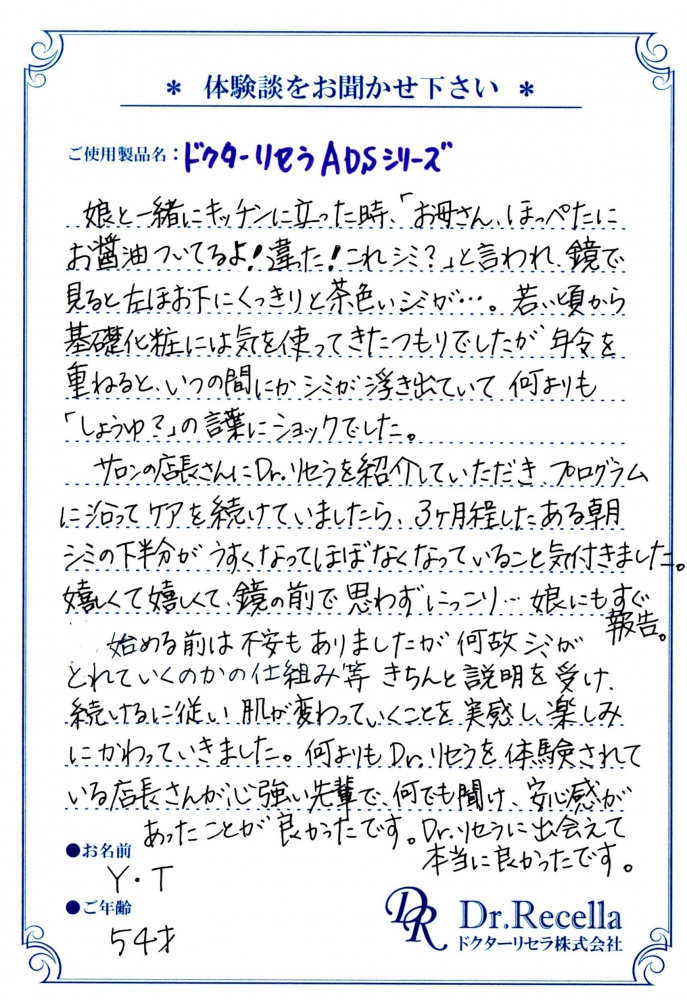 * 体験談をお聞かせ下さい *
ご使用製品名：ドクターリセラADSシリーズ
娘と一緒にキッチンに立った時、「お母さん、ほっぺたに
お醤油ついてるよ!違った!これシミ?」と言われ、鏡で
見ると左ほお下にくっきりと茶色いシミが…。若い頃から
基礎化粧には気を使ってきたつもりでしたが年令を
重ねると、いつの間にかシミが浮き出ていて何よりも
「しょうゆ?」の言葉にショックでした。
サロンの店長さんにDr.リセラを紹介していただき、プログラム
に沿ってケアを続けていましたら、3ヶ月経したある朝
シミの下半分がうすくなってほぼなくなっていること気付きました。
嬉しくて嬉しくて、鏡の前で思わずにっこり…娘にもすぐ
報告。
始める前は不安もありましたが何故シミが
とれていくのかの仕組み等きちんと説明を受け、
続けるに従い肌が変わっていくことを実感し、楽しみ
にかわっていきました。何よりもDr.リセラを体験されて
いる店長さんが心強い先輩で、何でも聞け、安心感が
あったことが良かったです。Dr.リセラに出会えて
本当に良かったです。
●お名前
Y・T
●ご年齢
54才
DR Dr.Recella
ドクターリセラ株式会社